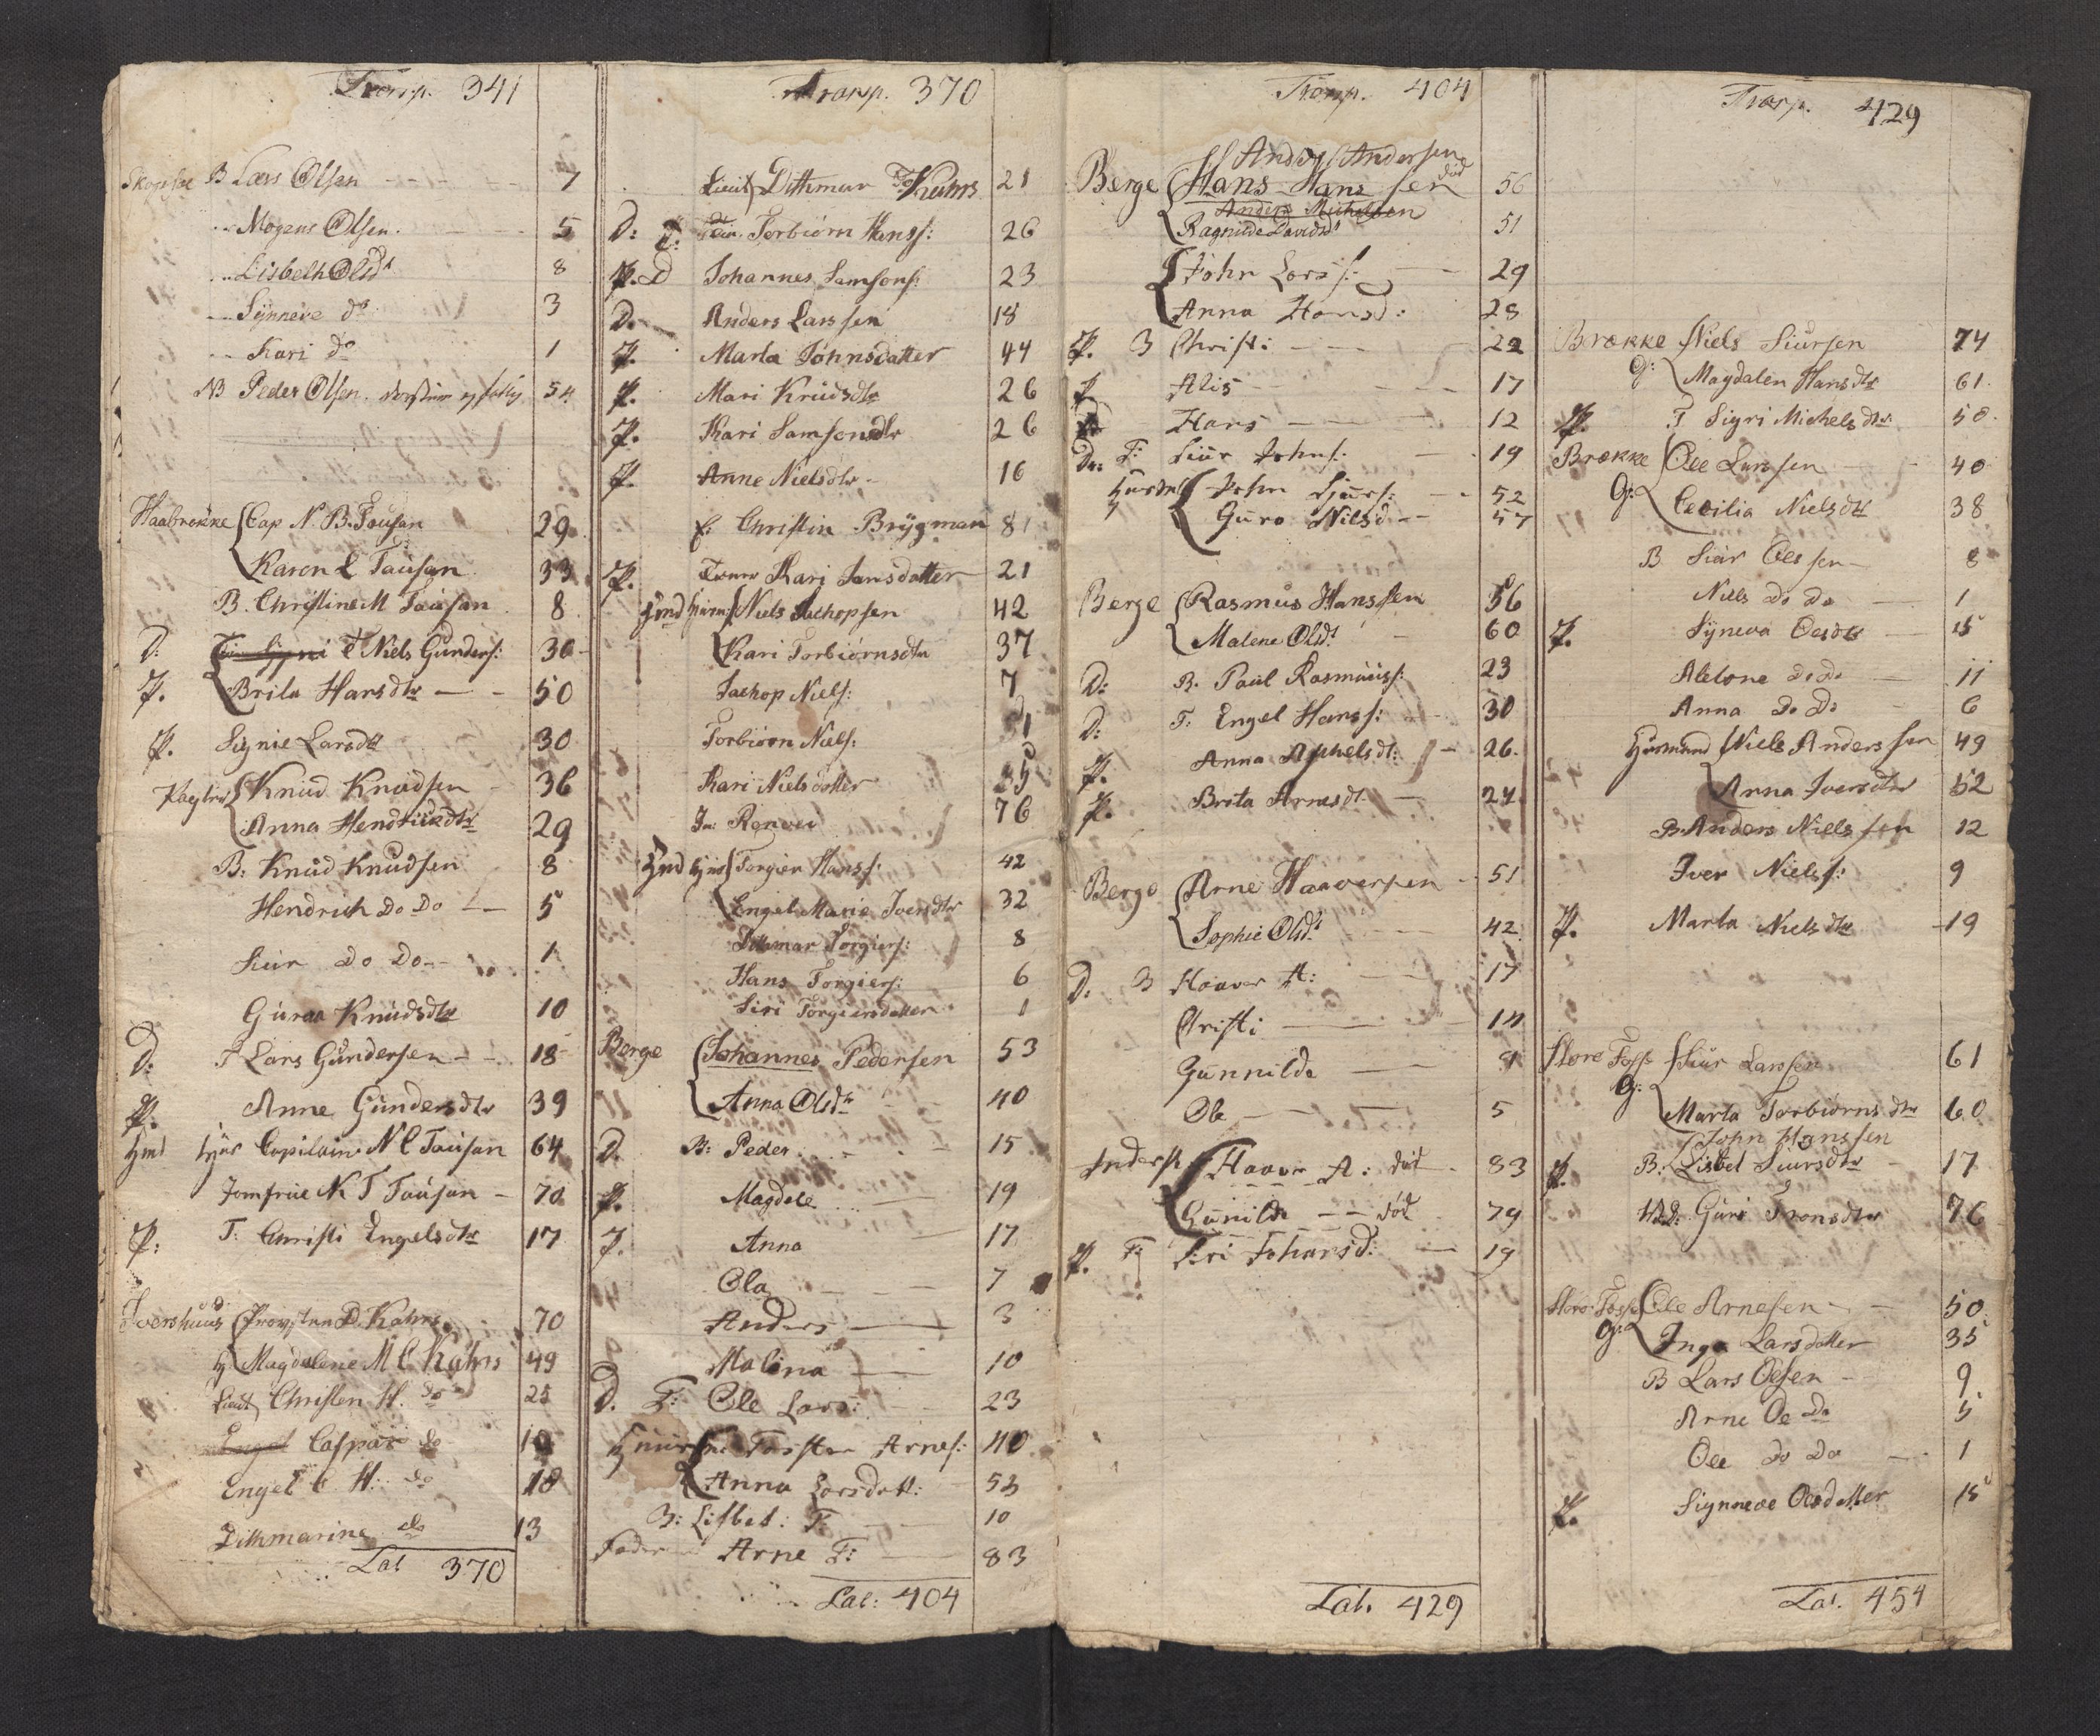 Transp. 341
Skopsøe B Lars Olsen 7
Mogens Olsen 5
Lisbeth Olsdt 8
Synneve do 3
Kari do 1
NB Peder Olsen 54
Haabrekke Cap N. B. Tausan 29
Karen L Tausan 33
B. Christine M Tausan 8
D: T Niels Gunders: 30
P. Brita Hansdtr 50
P. Signie Larsdtr 30
Knud Knudsen 36
Anna Hendrichdtr 29
B: Knud Knudsen 8
Hendrich Do Do 5
Siur Do Do 1
Guroa Knudsdtr 10
D: T Lars Gundersen 18
P. Anne Gundersdtr 39
Hmd Huus Capitain N C Tausan 64
Jomfrue N T Tausan 70
P: T: Christi Engelsdtr 17
Ivershuus Provsten D. Kahrs 70
H Magdalene M C Kahrs 49
Lieut Christen H. do 25
Engel Caspar do
Engel C H: do 18
Dithmarine do 13
Lat 370

Transp. 370
Lieut Dithmar Kahrs 21
D: T: Torbiørn Hanss: 26
P. D Johannes Samsons: 23
D. Anders Larssen 18
P. Marta Johnsdatter 44
P. Mari Knudsdtr 26
P. Kari Samsonsdtr 26
P. Anne Nielsdtr 16
F. Christin Brygman 81
P. Kari Jansdatter 21
Hmd Niels Jachopsen 42
Kari Torbiørnsdtr 37
Jachop Niels: 7
Torbiørn Niels:
Kari Nielsdatter
In: Ronvei 76
Hmd Huus Torgier Hanss: 42
Engel Marie Iversdtr 32
Dithmar Torgiers: 8
Hans Torgiers: 6
Siri Torgiersdatter 1
Berge Johannes Pedersen 53
Anna Olsdtr 40
D. B: Peder 15
P. Magdele 19
P. Anna 17
Ola 7
Anders 3
Malina 10
D. T: Ole Lars: 23
Torsten Arnes: 40
Anna Larsdatt: 53
B: Lisbet: T: 10
Fader Arne T: 83
Lat: 404

Transp. 404
Anders Andersen
Berge Hans Hanssen død 56
Anders Michelsen
Ragnilde Davidsdt 51
John Lars: 29
Anna Hansd: 28
P. B Christi 22
P Alis 17
Hans 12
Dr: T: Siur Johns: 19
Huusm John Sjurs: 52
Guro Nilsd 57
Berge Rasmus Hanssen 56
Malene Olsdt 60
D: B. Paul Rasmuss: 23
D: T: Engel Hanss: 30
P. Anna Aphelsdt: 26
P. Brita Arnesdt 24
Berge Arne Haaversen 51
Sophie Olsdt 42
D: B Haaver A: 17
Christi 14
Gunnilde 9
Ole 5
Inderst Haaver A: død 83
Gunilde død 79
P. T: Siri Johansd: 19
Lat. 429

Transp. 429
Brekke Niels Siursen 74
G: Magdalen Hansdtr 61
P. T Sigri Michelsdtr 50
Brekke Ole Larssen 40
G: Cecilia Nielsdtr 38
B Siur Olessen 8
Niels Do Do 1
P. Syneva Olesdtr 15
Aletone do do 11
Anna Do Do 6
Huusmand Niels Anderssen 49
Anna Iversdtr 52
B: Anders Nielssen 12
Iver Niels: 9
P. Marta Nielsdtr 19
Store Fosse Siur Larssen 61
G: Marta Torbiørnsdtr 60
John Hanssen
P. B: Lisbet Siursdtr 17
Guri Tronsdtr 76
Store Fosse Ole Arnesen 50
G: Inga Larsdatter 35
B Lars Olesen 9
Arne Ole Do 5
Ole do Do 1
P. Signneve Olesdatter 15
Lat. 454